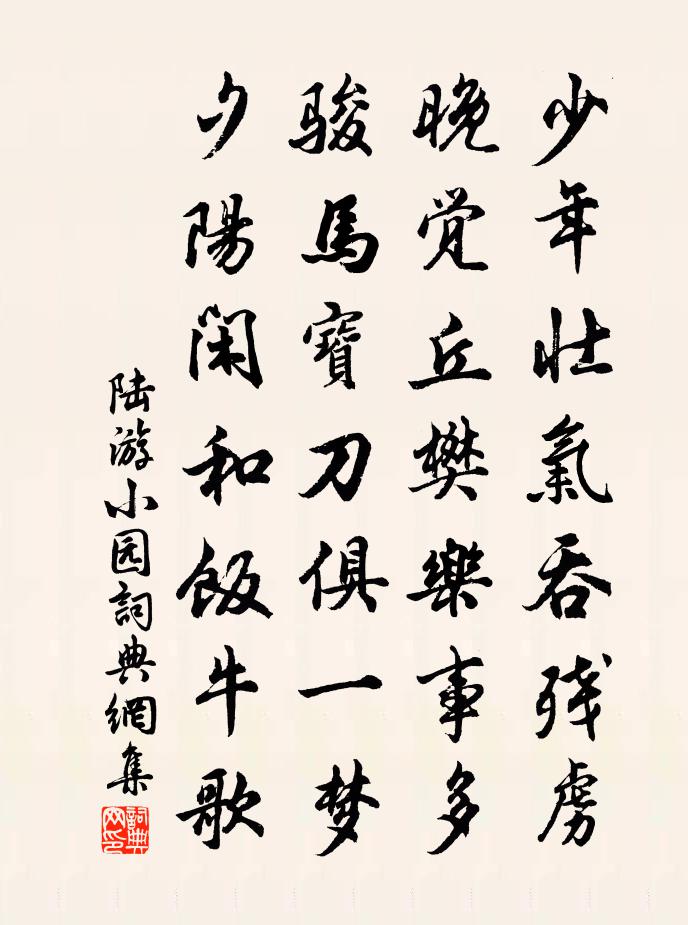 少年壮氣吞残虏
晚觉丘樊樂事多
骏馬寶刀俱一梦
夕陽闲和飯牛歌
陆游小园詞典網集
詞典网印